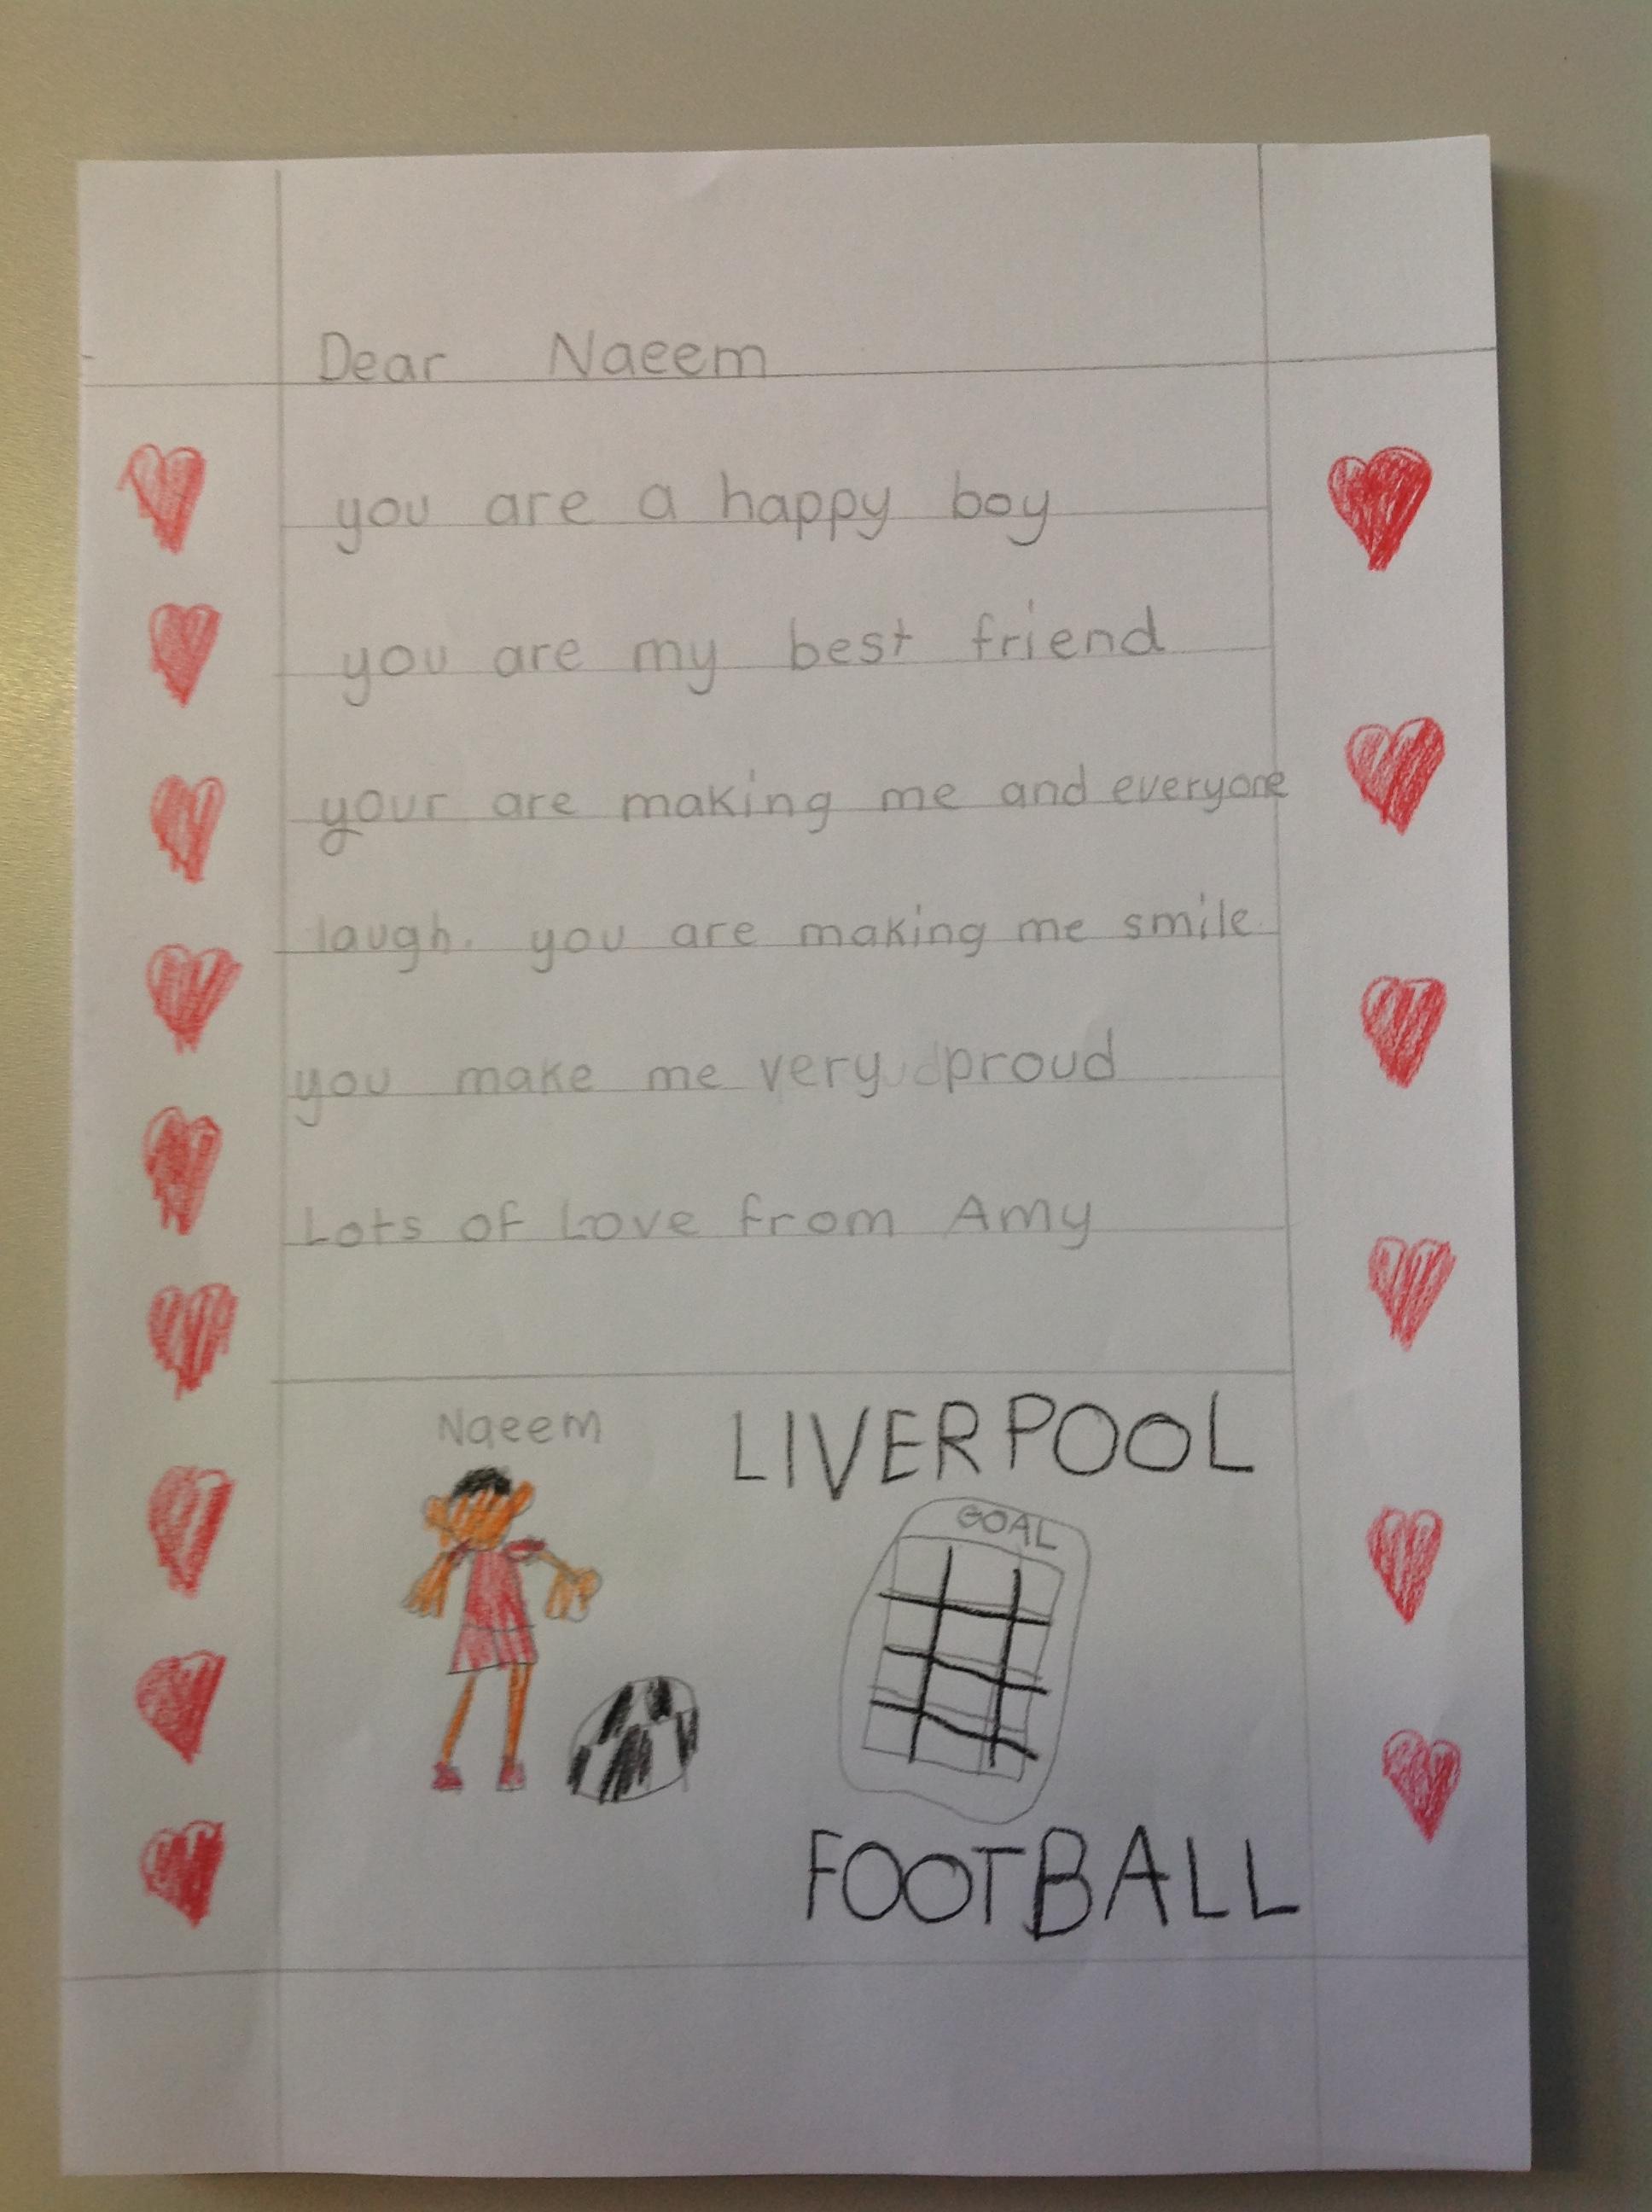 Dear Naeem
you are a happy boy
you are my best friend
your are making me and everyone
laugh. you are making me smile.
you make me very proud
Lots of Love from Amy
Naeem
LIVERPOOL
GOAL
FOOTBALL